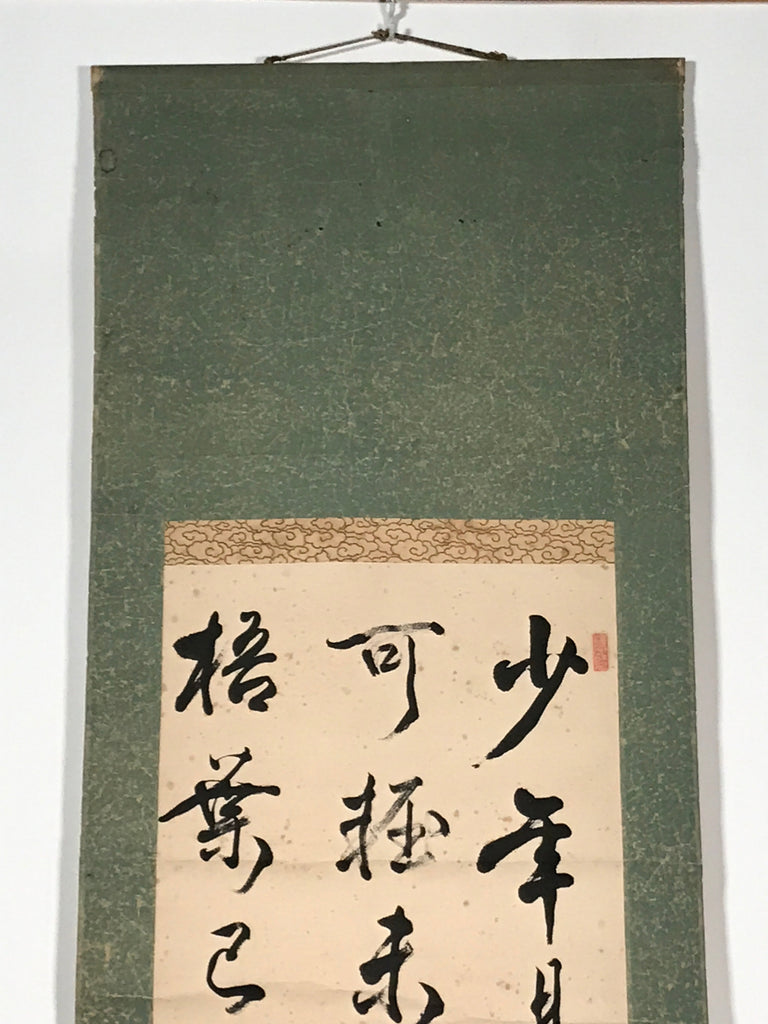 少年
可輕未
梧葉已